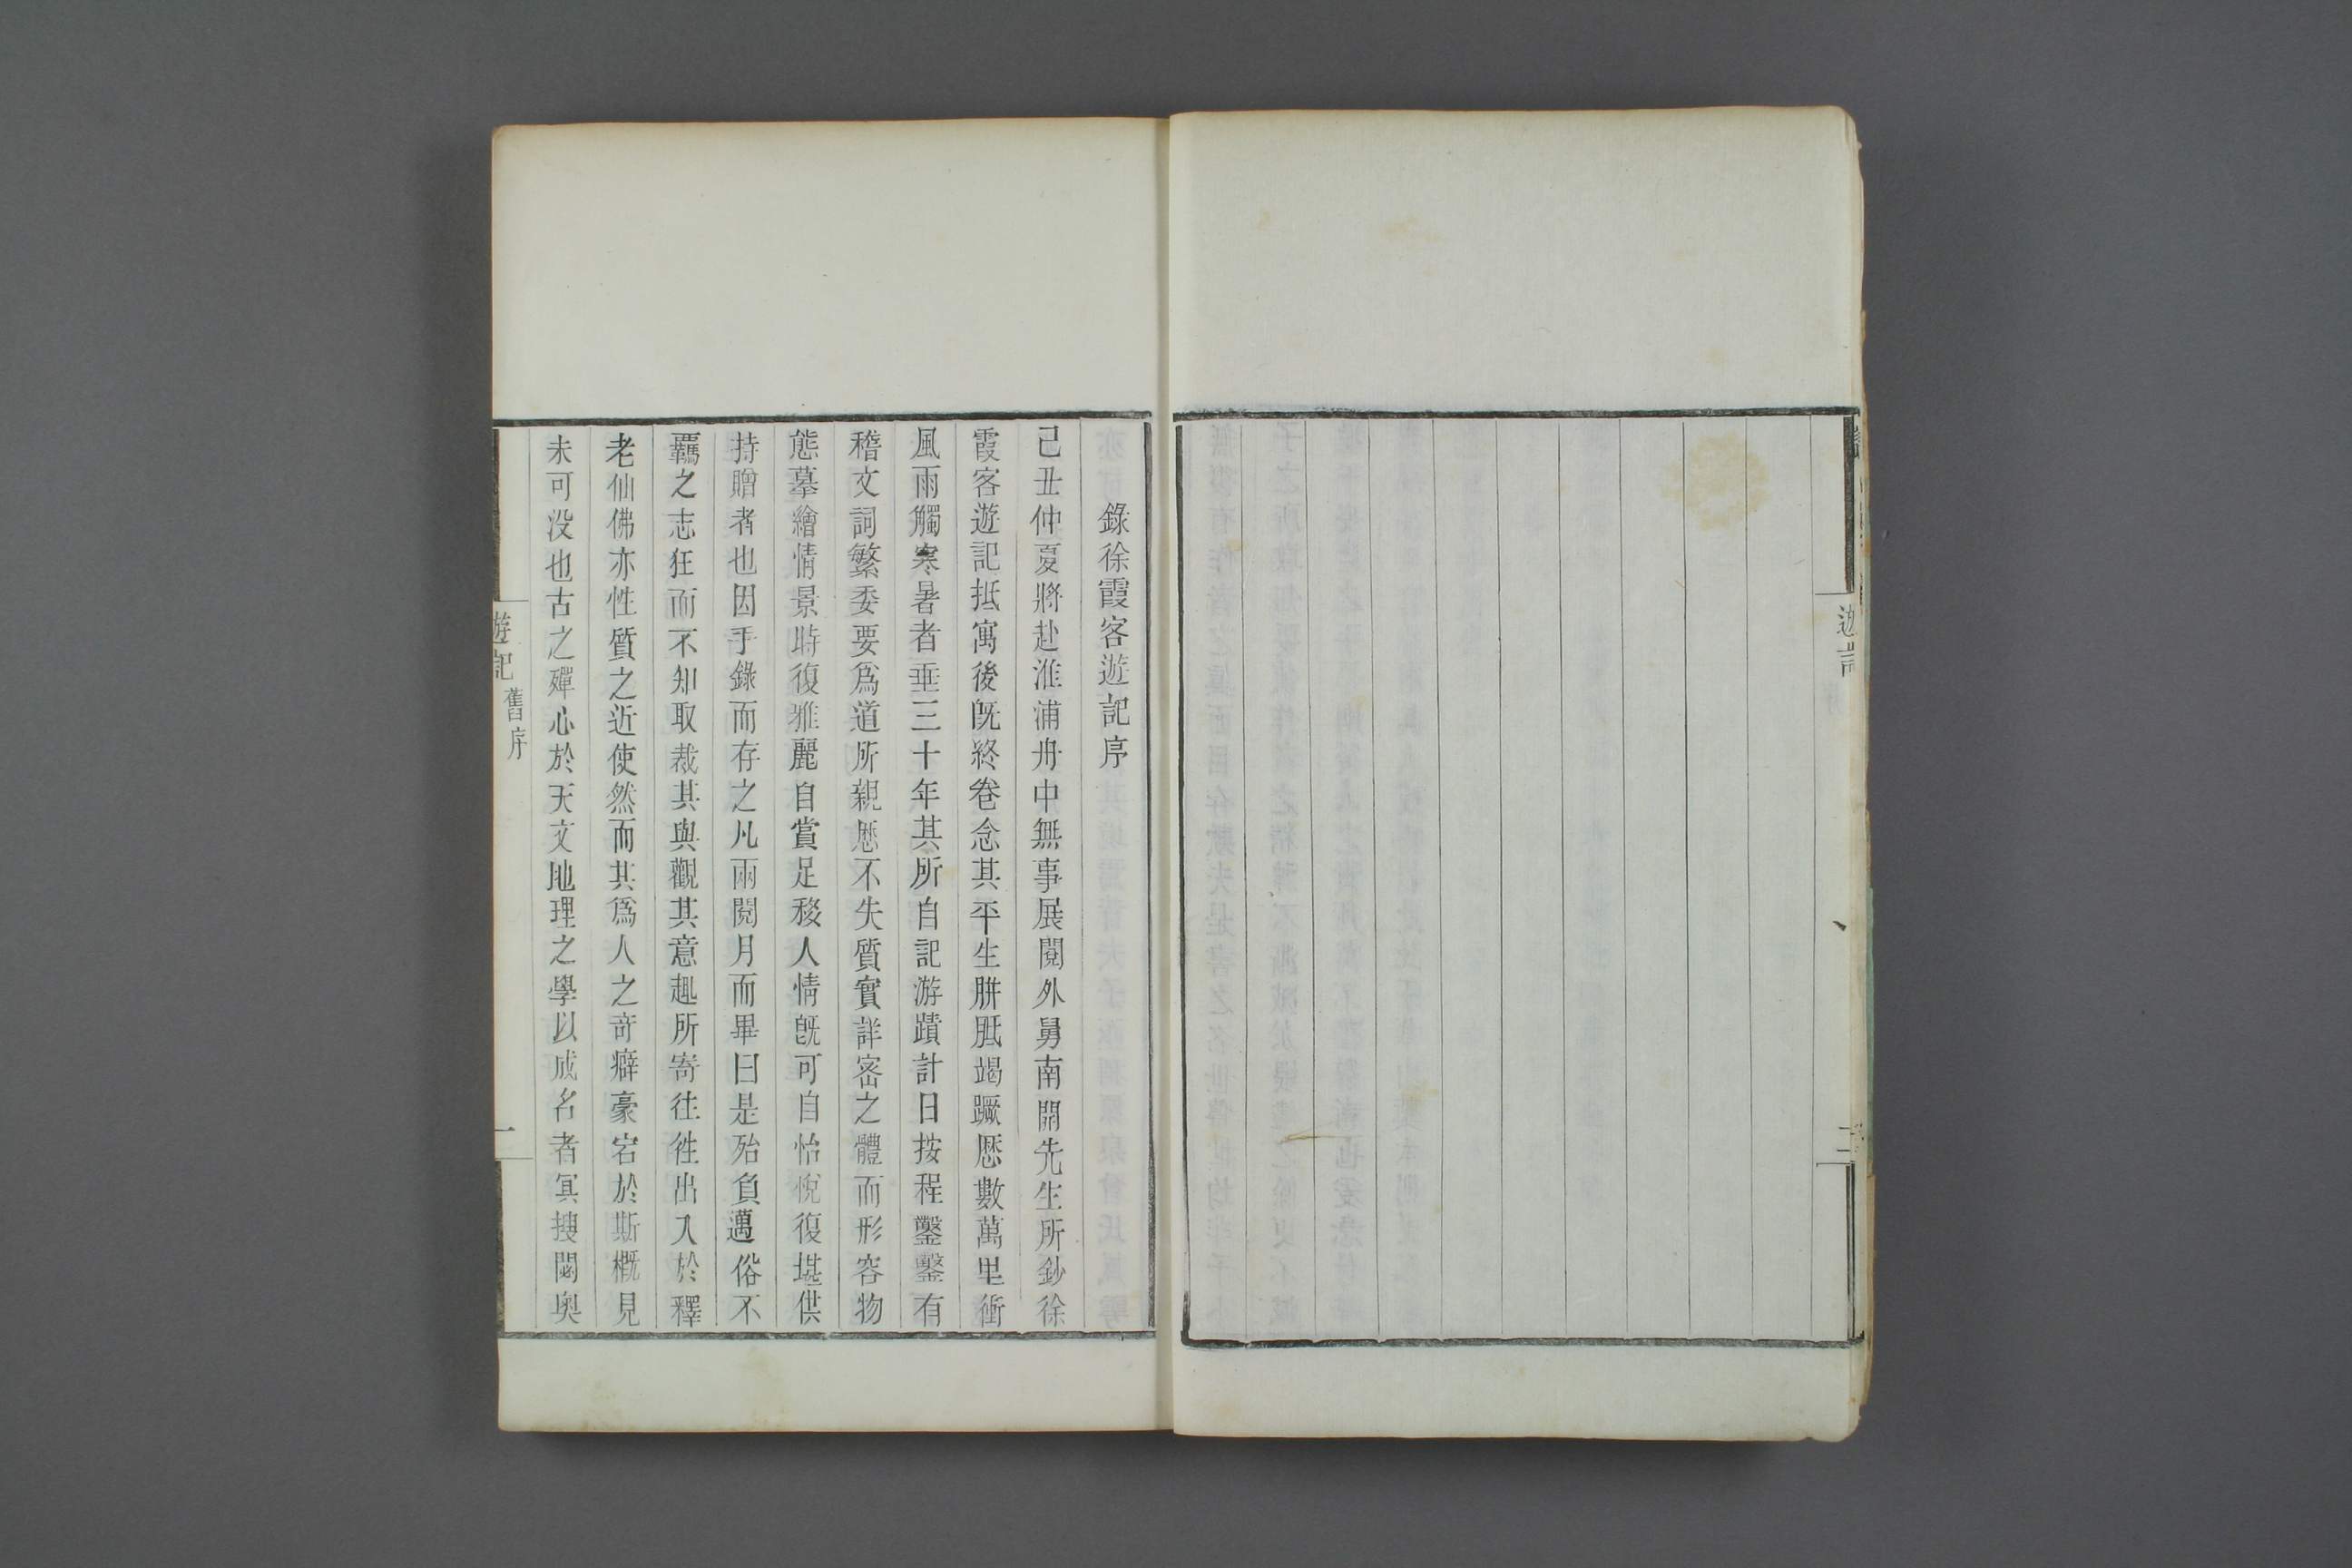 遊記
二
錄徐霞客遊記序
己丑仲夏將赴淮浦舟中無事展閱外舅南開先生所鈔徐
霞客遊記抵寓後旣終卷念其平生胼胝竭蹶歷數萬里衝
風雨觸寒暑者垂三十年其所自記游蹟計日按程鑿鑿有
稽文詞繁委要爲道所親歷不失質實詳密之體而形容物
態摹繪情景時復雅麗自賞足移人情旣可自怡悅復堪供
持贈者也因手錄而存之凡兩閱月而畢曰是殆負邁俗不
羈之志狂而不知取裁其與觀其意趣所寄往徃出入於釋
老仙佛亦性質之近使然而其爲人之奇癖豪宕於斯概見
未可没也古之殫心於天文地理之學以成名者冥搜閟奥
遊記
舊序
一